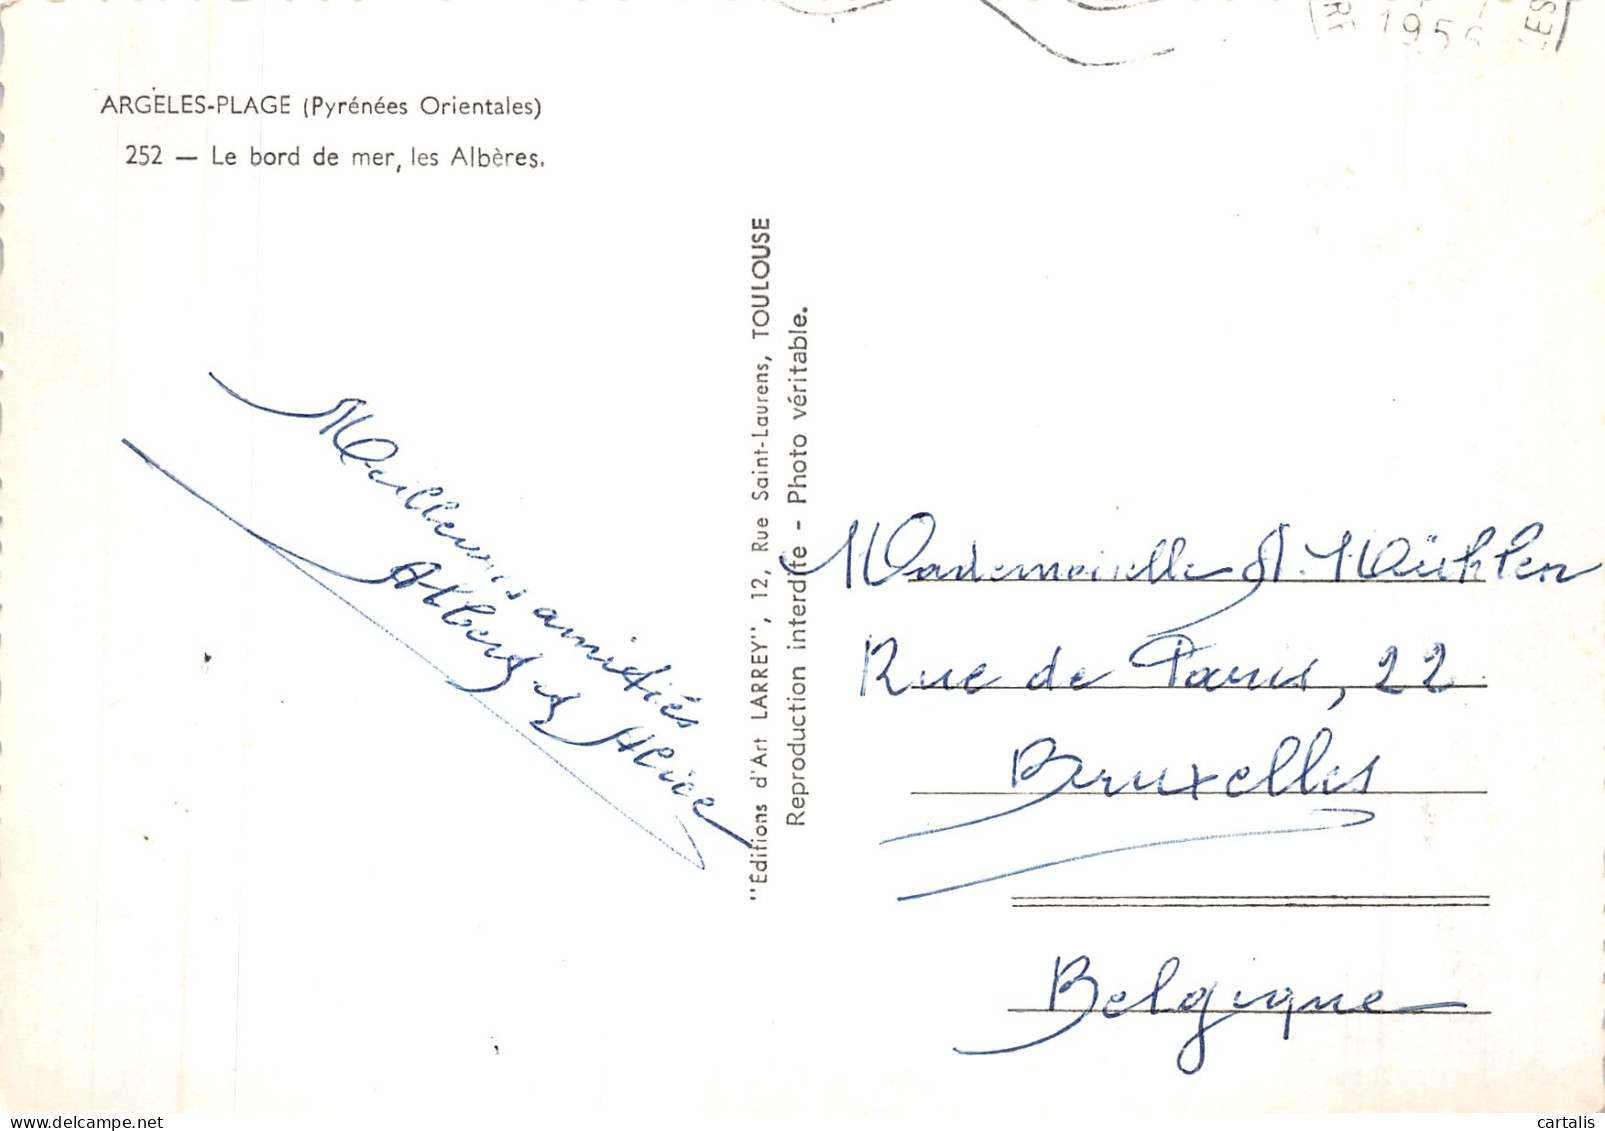 1956
ARGELÈS-PLAGE (Pyrénées Orientales)
252 — Le bord de mer, les Albères.
Meilleures amitiés
Albert et Alice
"Éditions d'Art LARREY", 12, Rue Saint-Laurens, TOULOUSE
Reproduction interdite - Photo véritable.
Mademoiselle A. Mühlen
Rue de Paris, 22
Bruxelles
Belgique
delcampe.net
cartalis